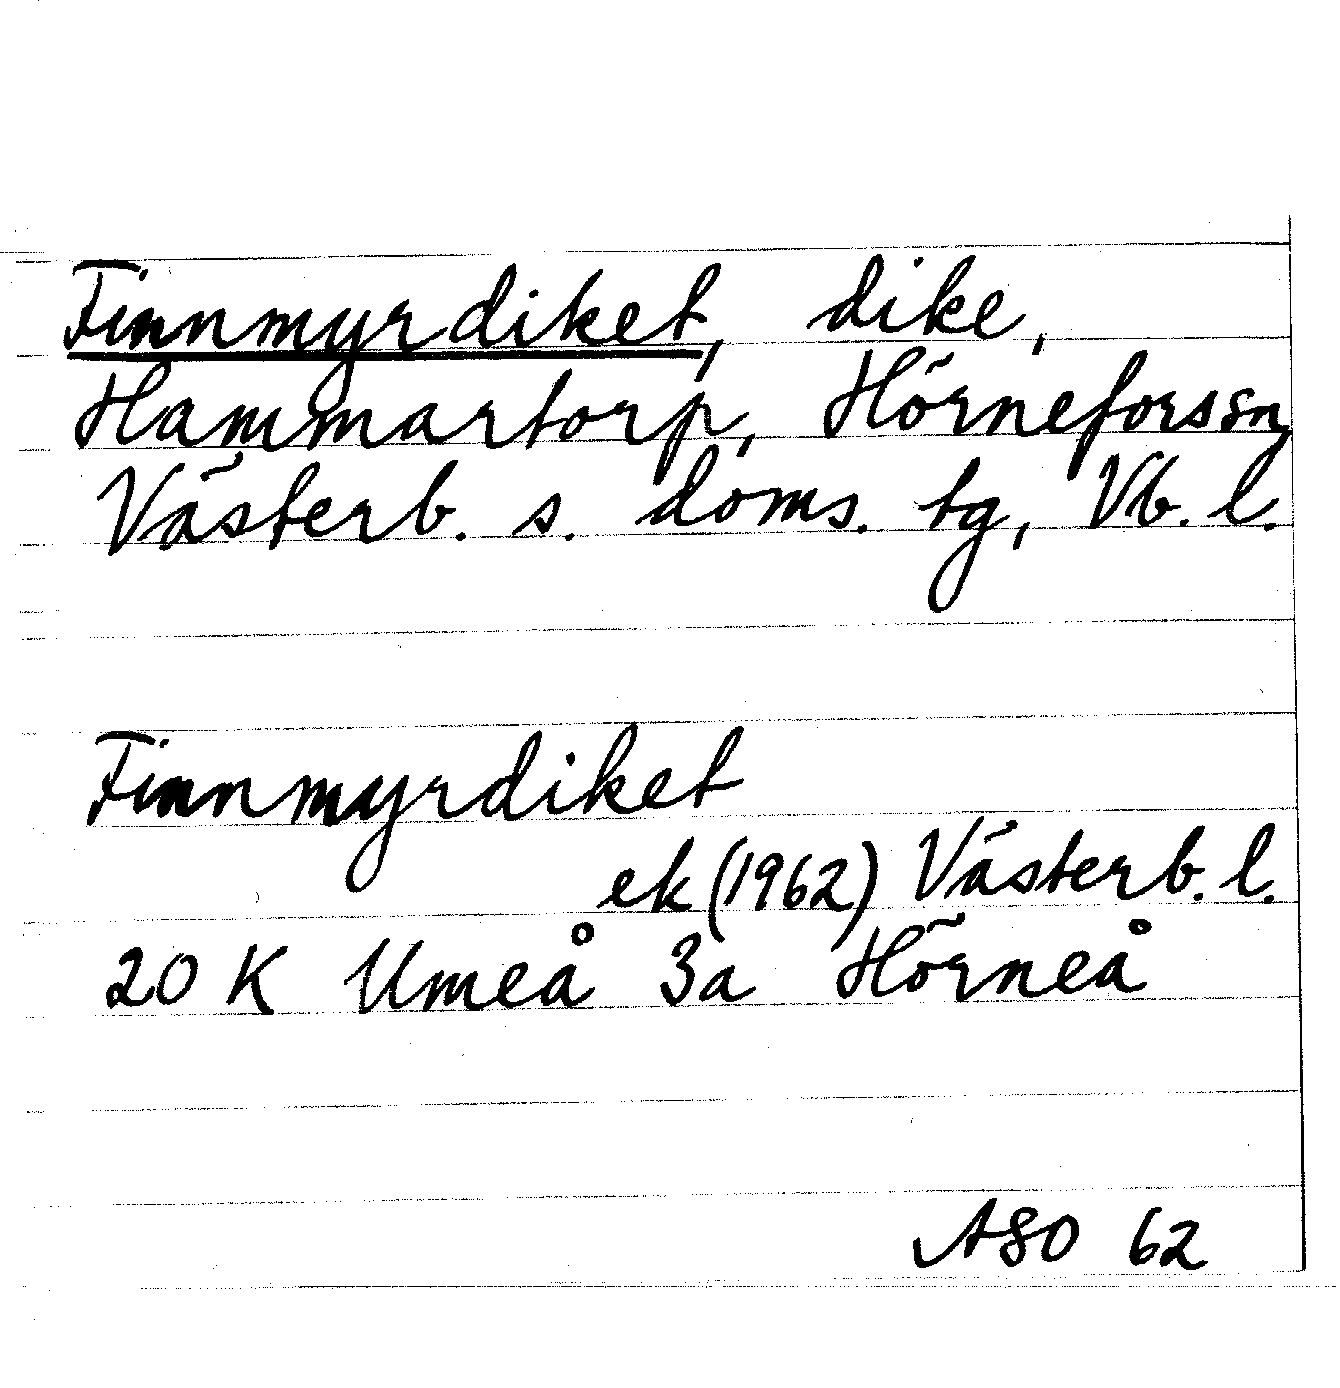 Finnmyrdiket, dike,
Hammartorp, Hörneforssn,
Västerb. s. doms. tg, Vb. l.
Finnmyrdiket
ek (1962) Västerb. l.
20 K Umeå 3a Hörneå
ASO 62